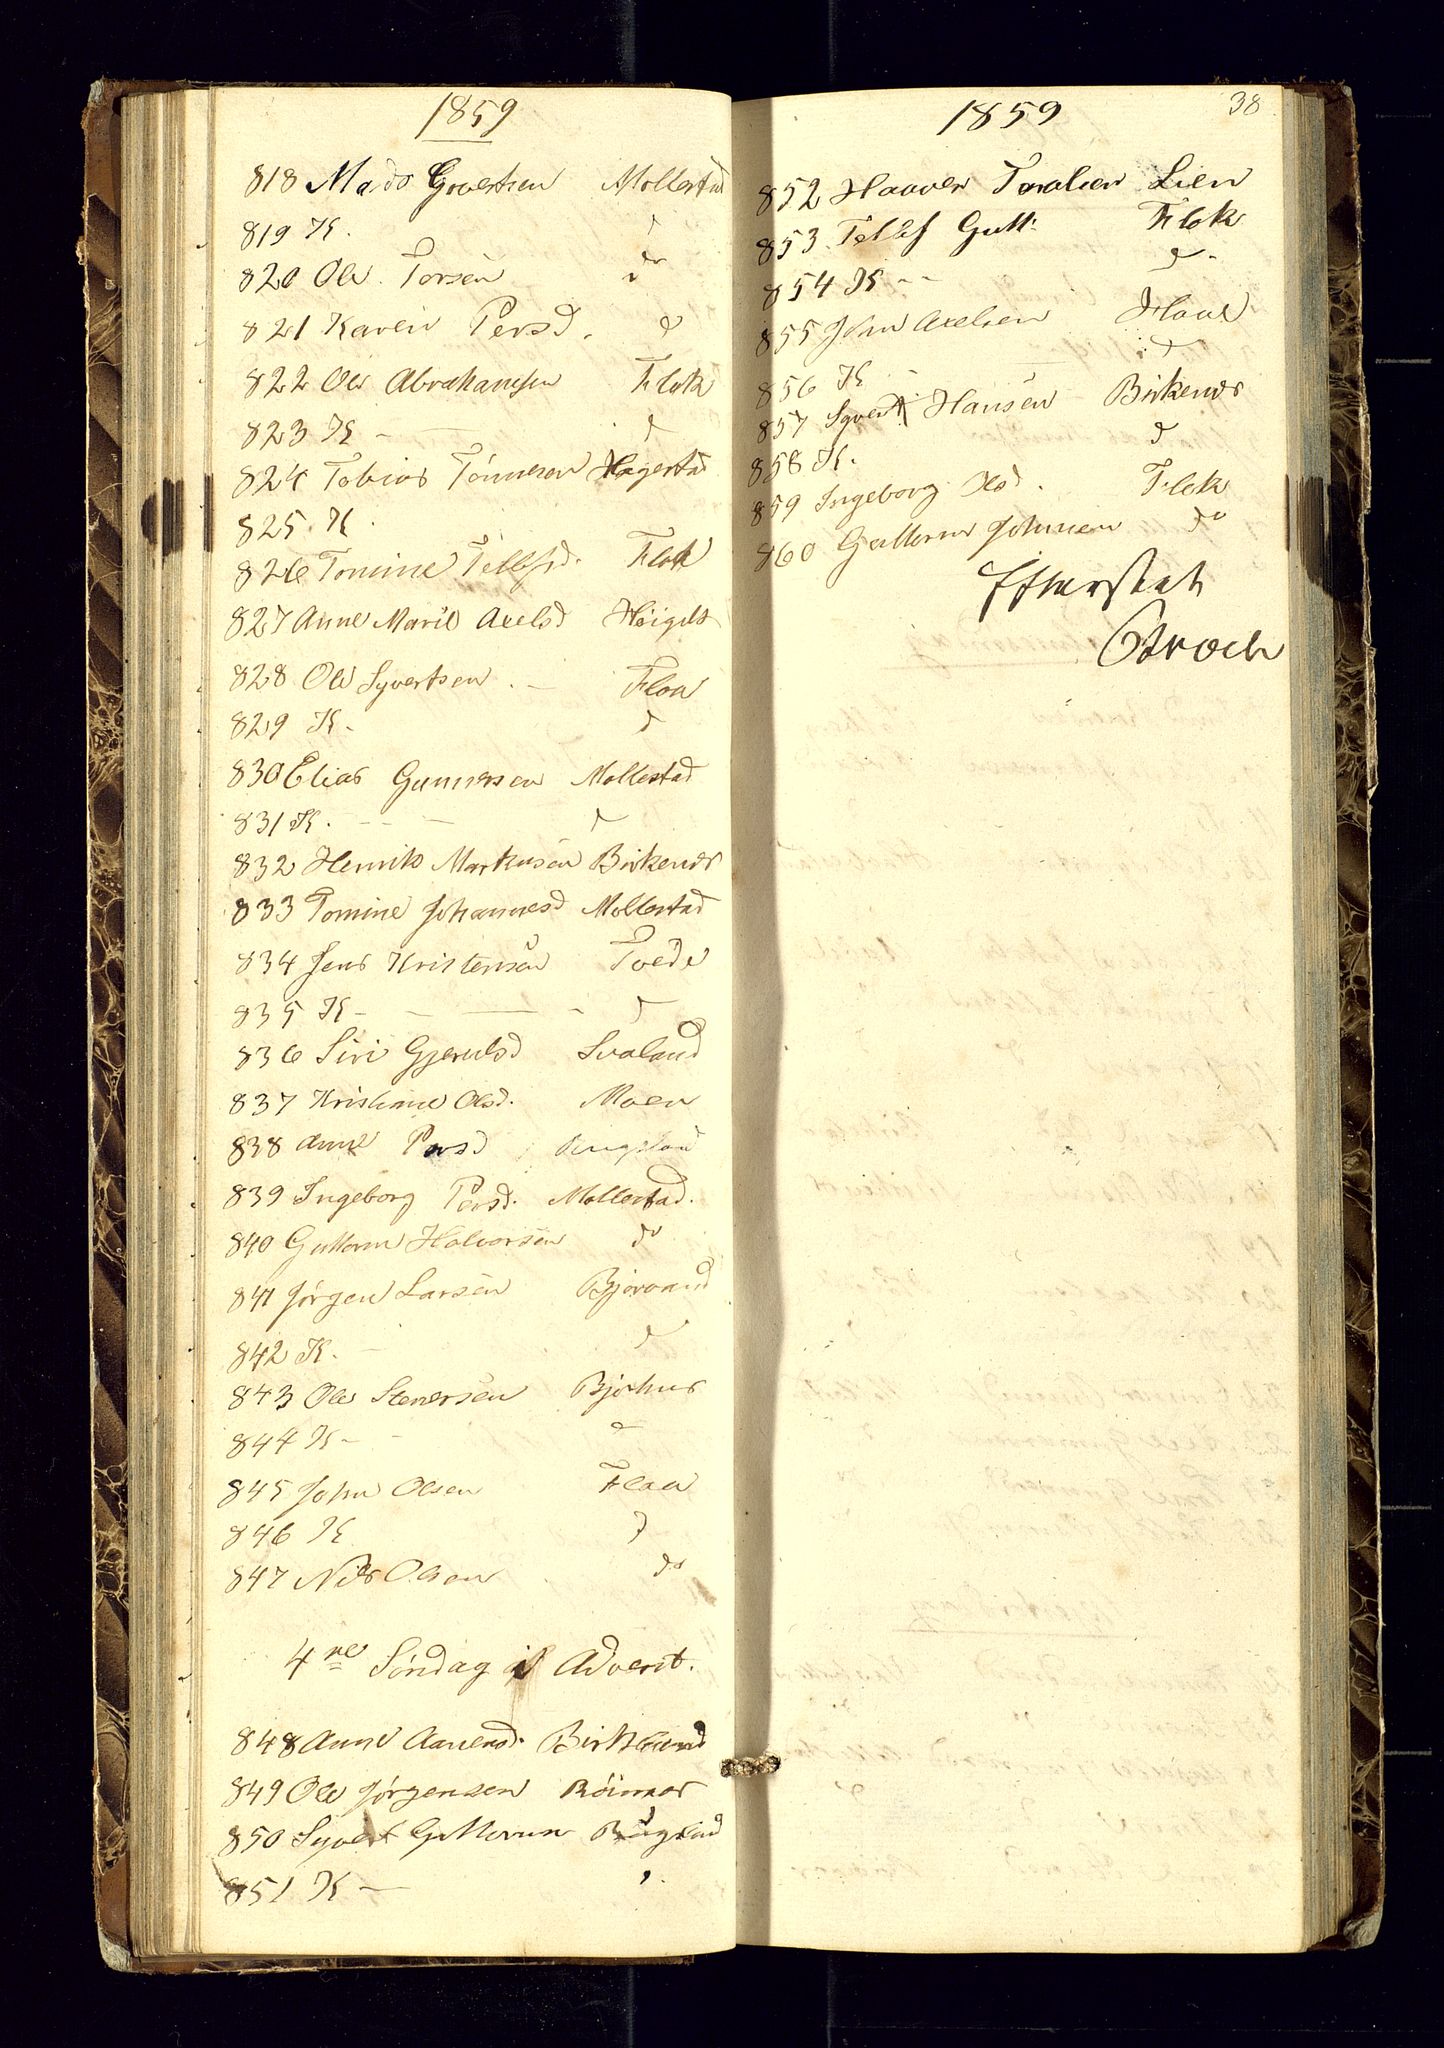 1859
818 Mads Govertsen Mollestad
819 K. d
820 Ole Torsen do
821 Karen Persd. d
822 Ole Abrahamsen Flak
823 K - d
824 Tobias Tønnesen Hagestad
825. K.
826 Tomine Tellefsd. Flak
827 Anne Marie Axelsd
828 Ole Syvertsen . - Flaa
829 K - d
830 Elias Gunnersen Mollestad
831 K. - - - d
832 Henrik Markusen Birkenes
833 Tomine Johannesd Mollestad
834 Jens Kristensen Tvede
835 K - - - - d
836 Siri Gjerulsd Svaland
837 Kristiane Olsd. Moen
838 Anne Persd Rugslad
839 Ingeborg Persd. Mollestad.
840 Guttorm Halvorsen do
841 Jørgen Larsen Bjorvand
842 K. - d
843 Ole Stenersen Bjorhus
844 K - - d
845 John Olsen Flaa
846 K d
847 Nils Olsen do
4de Søndag i Advent.
848 Anne Aanensd. Birkeland
849 Ole Jørgensen Røinaas
850 Syvert Guttormsen Rugslad
851 K -
38
1859
852 Haaver Teralsen Lien
853. Tellef Gutt: Flak
854 K - - d -
855 John Axelsen Flaa
856 K - d
857 Syvert Hansen Birkenes
858 K. d
859 Ingeborg Olsd. Flak
860 Guttorm Johnsen do
Efterseet
Broch